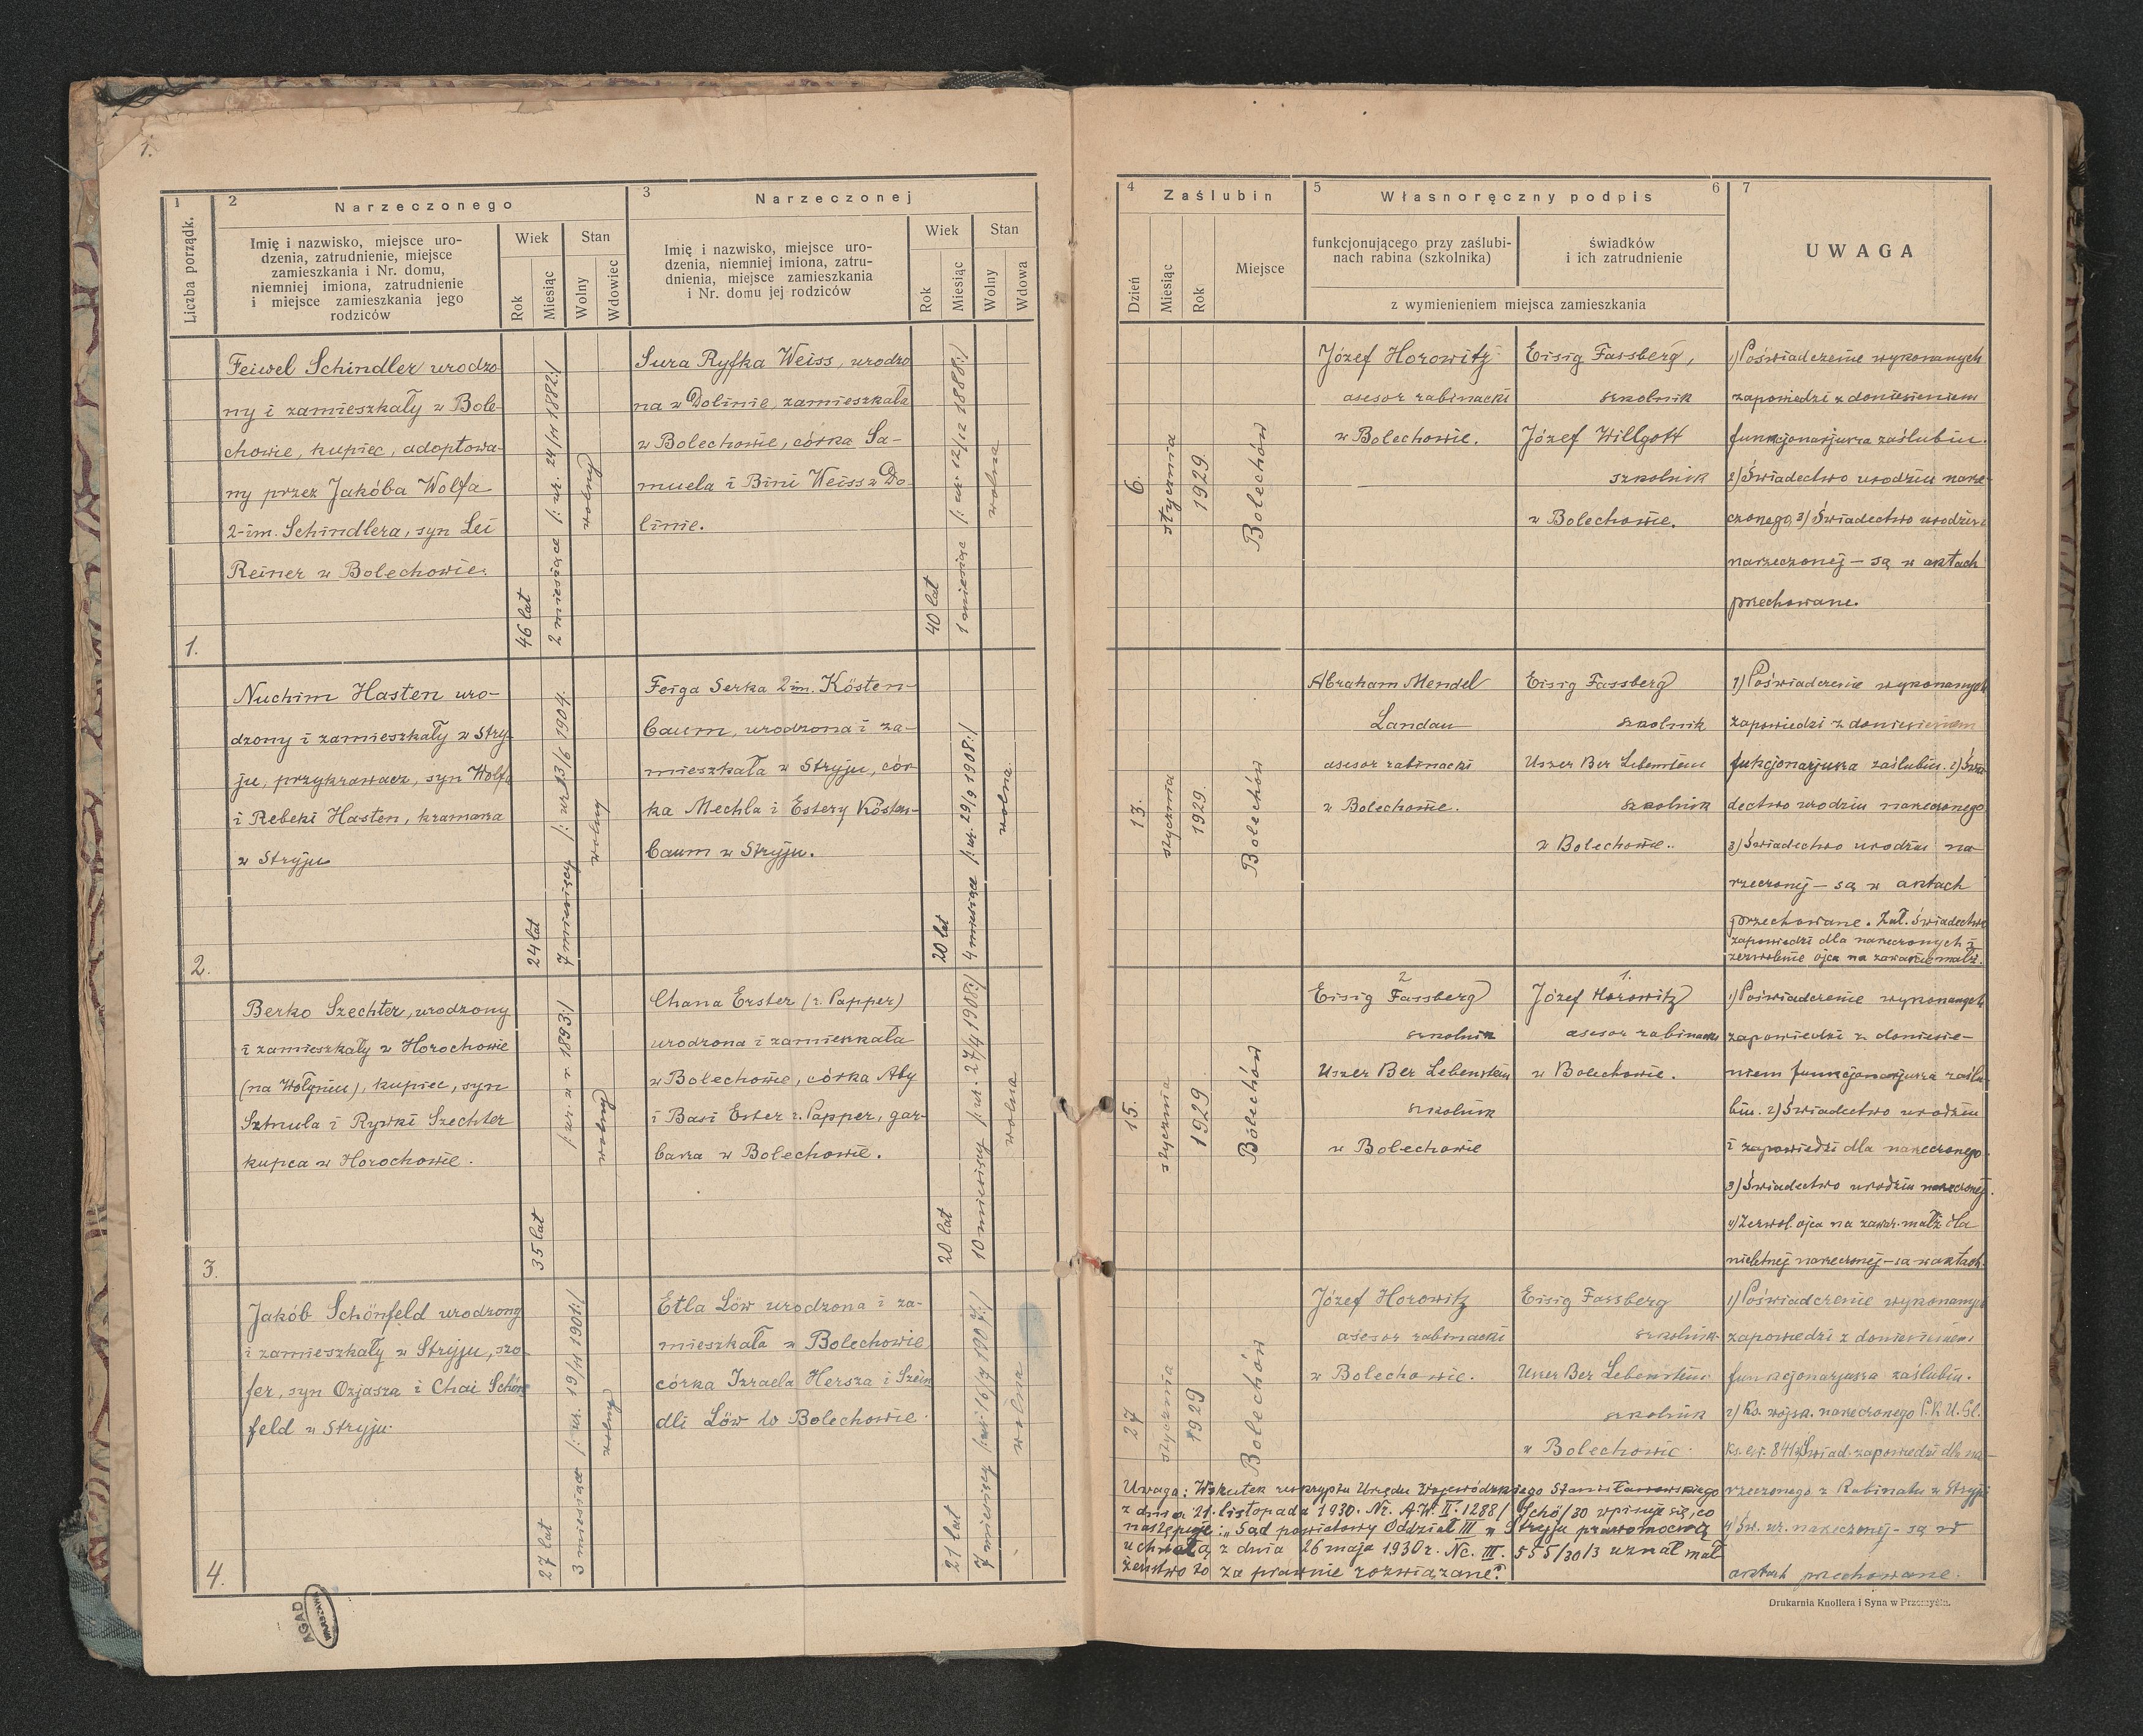 1.
1
2
Narzeczonego
3
Narzeczonej
Liczba porządk.
Imię i nazwisko, miejsce uro-
dzenia, zatrudnienie, miejsce
zamieszkania i Nr. domu,
niemniej imiona, zatrudnienie
i miejsce zamieszkania jego
rodziców
Wiek
Stan
Rok
Miesiąc
Wolny
Wdowiec
Imię i nazwisko, miejsce uro-
dzenia, niemniej imiona, zatru-
dnienia, miejsce zamieszkania
i Nr. domu jej rodziców
Wiek
Stan
Rok
Miesiąc
Wolny
Wdowa
4
Zaślubin
5
Własnoręczny podpis
6
7
Dzień
Miesiąc
Rok
Miejsce
funkcjonującego przy zaślubi-
nach rabina (szkolnika)
świadków
i ich zatrudnienie
z wymienieniem miejsca zamieszkania
UWAGA
1.
Feiwel Schindler urodzo
ny i zamieszkały w Bole-
chowie, kupiec, adoptowa-
ny przez Jakóba Wolfa
2-im. Schindlera, syn Lei
Reiner w Bolechowie.
46 lat
2 miesiące /: ur. 24/11 1882:/
wolny
Sura Ryfka Weiss, urodzo
na w Dolinie, zamieszkała
w Bolechowie, córka Sa-
muela i Bini Weiss w Do-
linie.
40 lat
1 miesiąc /: ur. 12/12 1888:/
wolna
6.
stycznia
1929.
Bolechów
Józef Horowitz
asesor rabinacki
w Bolechowie.
Eisig Fassberg,
szkolnik
Józef Willgott
szkolnik
w Bolechowie.
1) Poświadczenie wykonanych
zapowiedzi z doniesieniem
funkcjonarjusza zaślubin.
2) Świadectwo urodzin narze-
czonego, 3) Świadectwo urodzin
narzeczonej — są w aktach
przechowane.
2.
Nuchim Hasten uro-
dzony i zamieszkały w Stry-
ju, przykrawacz, syn Wolfa
i Rebeki Hasten, kramarza
w Stryju
24 lat
7 miesięcy /: ur. 13/6 1904.
wolny
Feiga Serka 2 im. Kösten-
baum, urodzona i za-
mieszkała w Stryju, cór-
ka Mechla i Estery Kösten-
baum w Stryju.
20 lat
4 miesiące /: ur. 29/9 1908:/
wolna
13.
stycznia
1929.
Bolechów
Abraham Mendel
Landau
asesor rabinacki
w Bolechowie.
Eisig Fassberg
szkolnik
Uszer Ber Lebenstein
szkolnik
w Bolechowie.
1) Poświadczenie wykonanych
zapowiedzi z doniesieniem
funkcjonarjusza zaślubin. 2) Świa
dectwo urodzin narzeczonego
3) Świadectwo urodzin na-
rzeczonej — są w aktach
przechowane. Zał. świadectwo
zapowiedzi dla narzeczonych i
zezwolenie ojca na zawarcie małż.
3.
Berko Szechter, urodzony
i zamieszkały w Horochowie
(na Wołyniu), kupiec, syn
Szmula i Rywki Szechter
kupca w Horochowie.
35 lat
/: ur. w r. 1893:/
wolny
Chana Erster (r. Papper)
urodzona i zamieszkała
w Bolechowie, córka Aby
i Basi Erster r. Papper, gar-
barza w Bolechowie.
20 lat
10 miesięcy /: ur. 27/4 1908:/
wolna
15.
stycznia
1929
Bolechów
2
Eisig Fassberg
szkolnik
Uszer Ber Lebenstein
szkolnik
w Bolechowie
1.
Józef Horowitz
asesor rabinacki
w Bolechowie.
1) Poświadczenie wykonanych
zapowiedzi z doniesie-
niem funkcjonarjusza zaślu-
bin. 2) Świadectwo urodzin
i zapowiedzi dla narzeczonego.
3) Świadectwo urodzin narzeczonej.
4) Zezwol. ojca na zawar. małż. dla
nieletniej narzeczonej — są w aktach.
4.
Jakób Schönfeld urodzony
i zamieszkały w Stryju, szo-
fer, syn Ozjasza i Chai Schön
feld w Stryju.
27 lat
3 miesiące /: ur. 19/11 1901:/
wolny
Etla Löw urodzona i za-
mieszkała w Bolechowie
córka Izraela Hersza i Szein
dli Löw w Bolechowie.
21 lat
7 miesięcy
wolna
27
stycznia
1929
Bolechów
Józef Horowitz
asesor rabinacki
w Bolechowie.
Eisig Fassberg
szkolnik.
Uszer Ber Lebenstein
szkolnik
w Bolechowie.
1) Poświadczenie wykonanych
zapowiedzi z doniesieniem
funkcjonarjusza zaślubin.
2) Ks. wojsk. narzeczonego P.K.U. Gl.
ks. ew. 841 3) Świad. zapowiedzi dla na-
rzeczonego z Rabinatu w Stryju
4) Św. ur. narzeczonej — są w
aktach przechowane.
Uwaga: Wskutek reskryptu Urzędu Wojewódzkiego Stanisławowskiego
z dnia 21. listopada 1930. Nr. A.W. II. 1288/ Schö/30 wpisuje się, co
następuje: „Sąd powiatowy Oddział III w Stryju prawomocną
uchwałą z dnia 26 maja 1930 r. Nc. III. 555/30/3 uznał mał-
żeństwo to za prawnie rozwiązane."
AGAD
WARSZAWA
Drukarnia Knollera i Syna w Przemyślu.